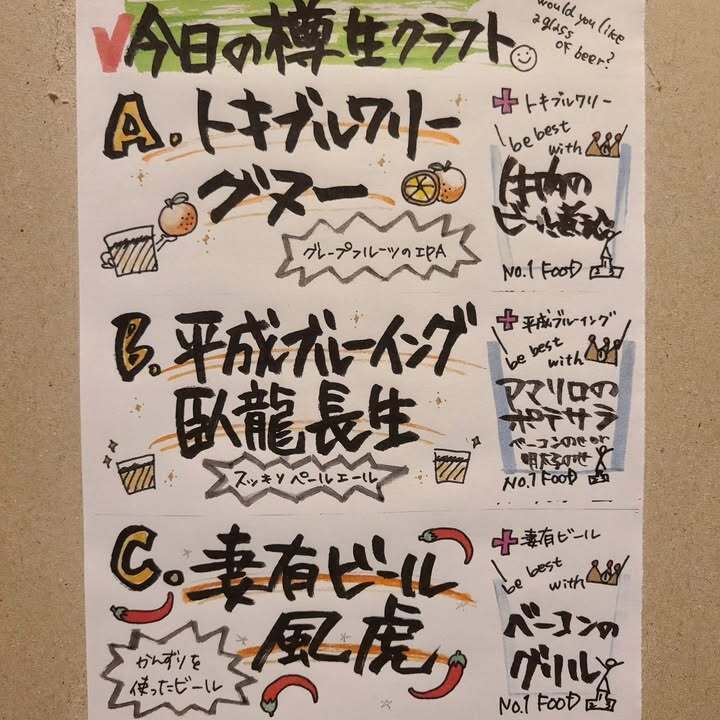 今日の樽生クラフト
would you like
a glass
of beer?
A. トキブルワリー
グヌー
グレープフルーツのIPA
+ トキブルワリー
be best
with
牛肉の
ビール煮込
No.1 FOOD
B. 平成ブルーイング
臥龍長生
スッキリペールエール
+ 平成ブルーイング
be best
with
アマリロの
ポテサラ
ベーコンのせ or
明太のせ
No.1 FOOD
C. 妻有ビール
風虎
かんずりを
使ったビール
+ 妻有ビール
be best
with
ベーコンの
グリル
No.1 FOOD